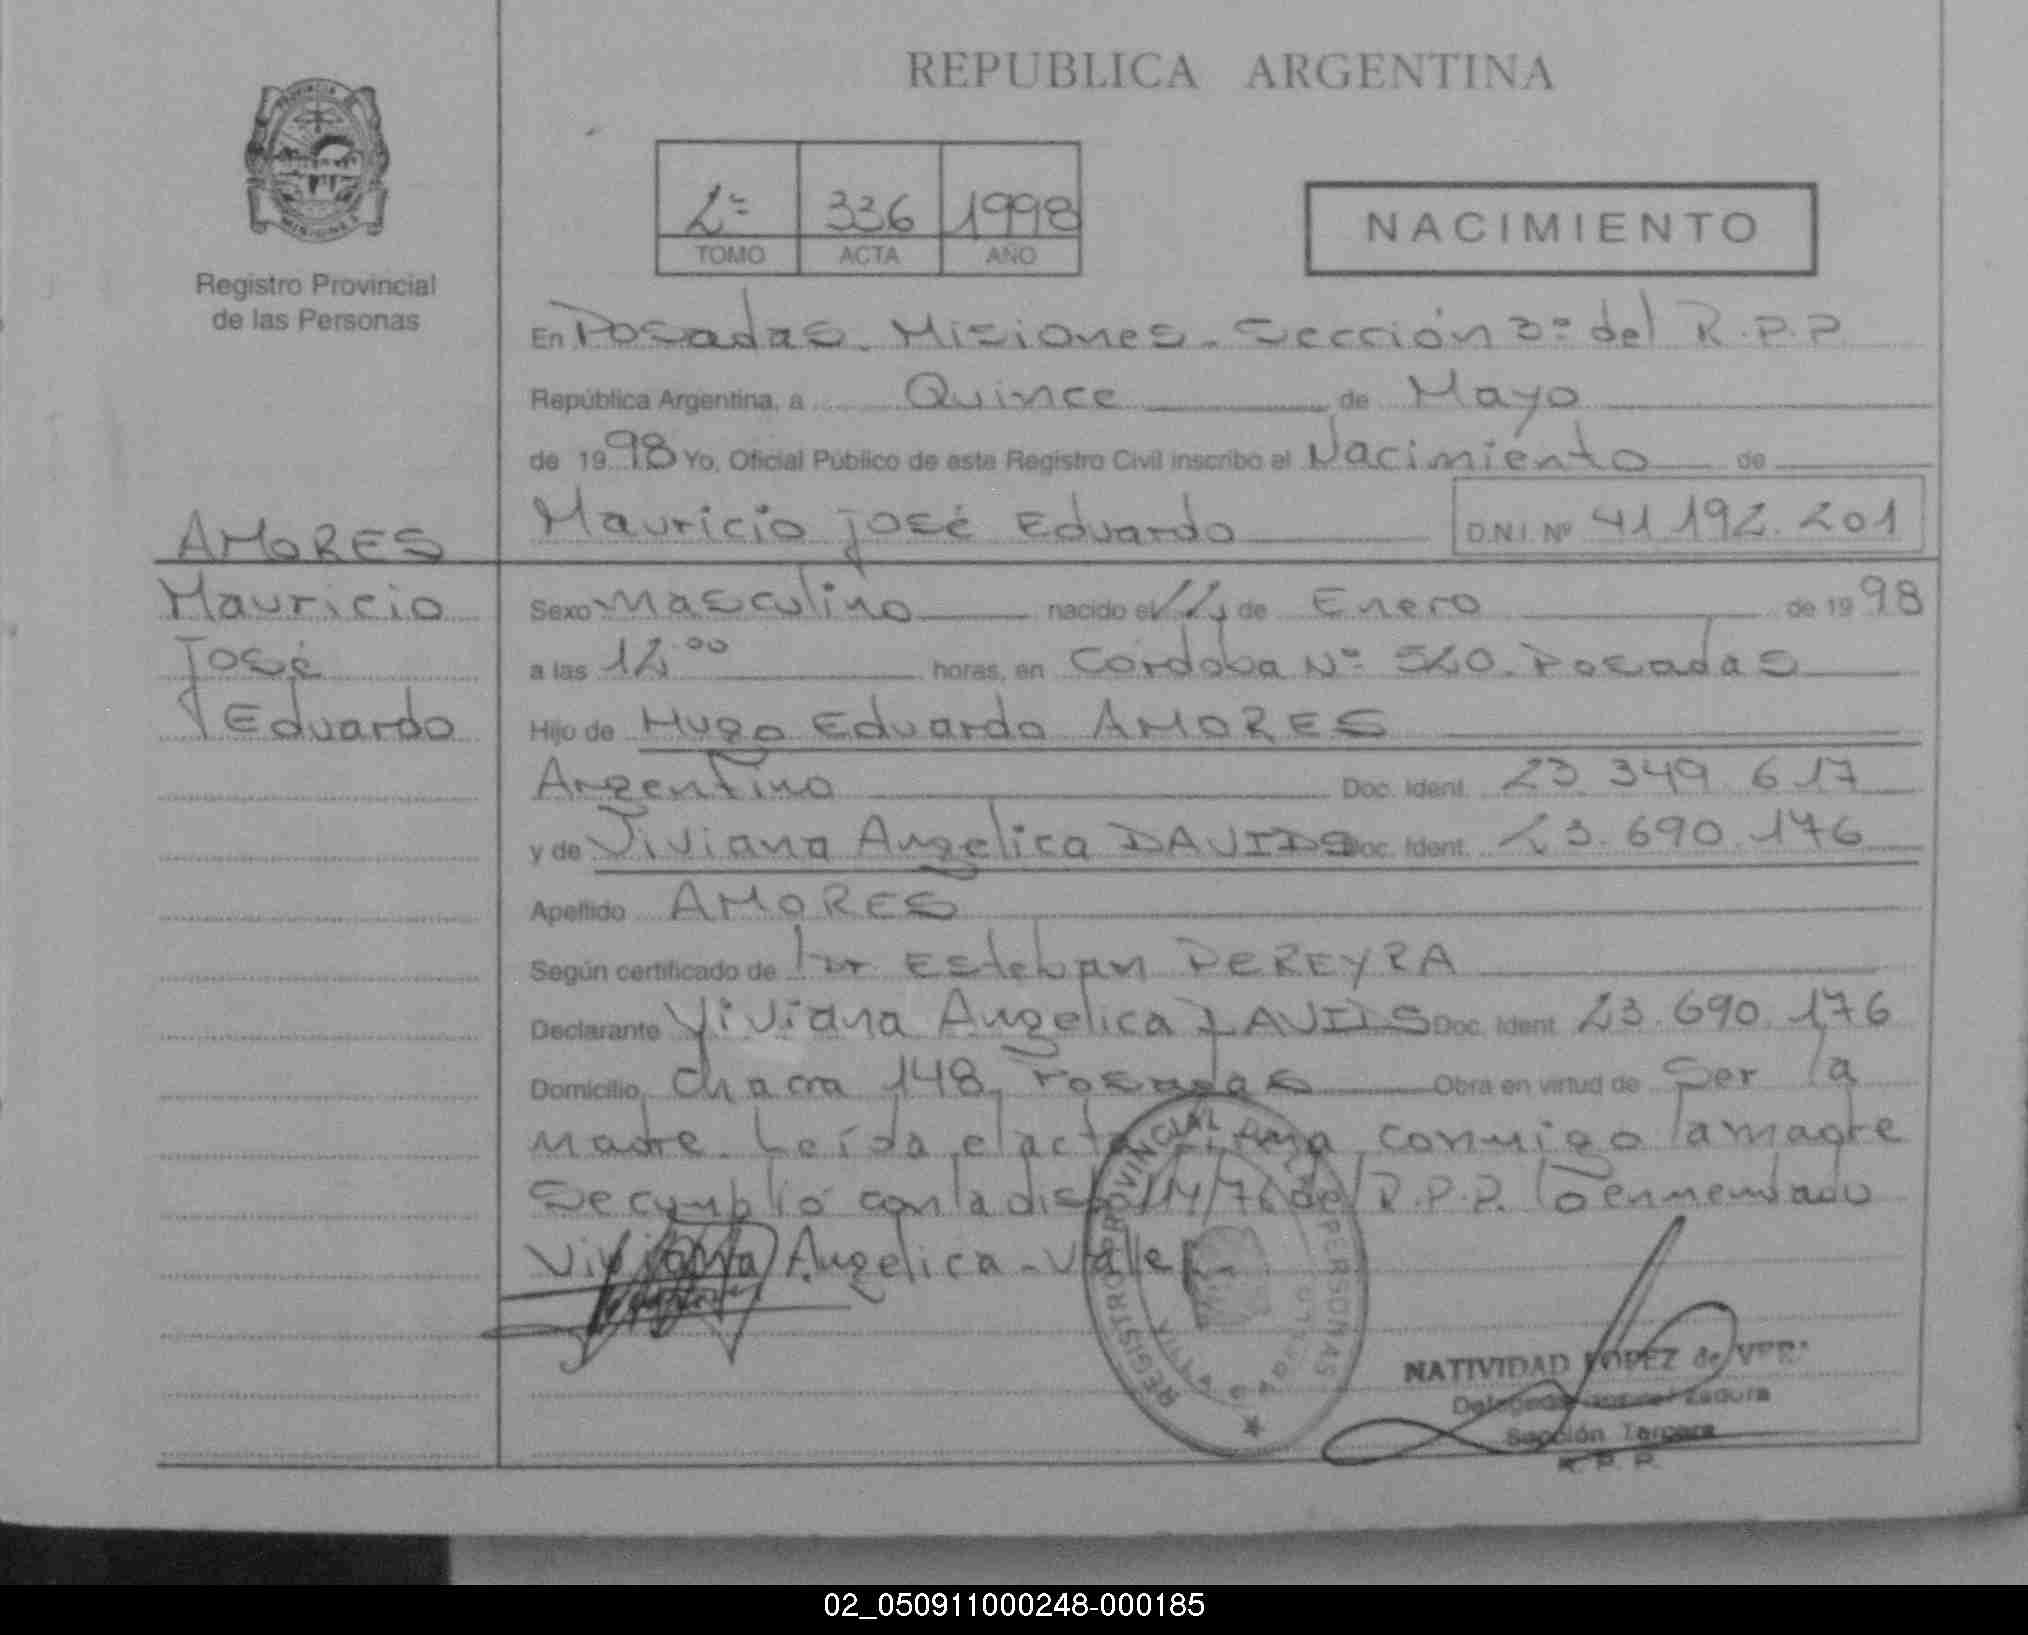 REPUBLICA ARGENTINA
PROVINCIA
MISIONES
Registro Provincial
de las Personas
2º 336 1998
TOMO ACTA AÑO
NACIMIENTO
En Posadas. Misiones. Sección 3º del R.P.P.
República Argentina, a Quince de Mayo
de 1998 Yo, Oficial Público de este Registro Civil inscribo el Nacimiento de
Mauricio José Eduardo D.N.I. Nº 41.192.201
AMORES
Mauricio
José
Eduardo
Sexo masculino nacido el de Enero de 1998
a las 12.00 horas, en Córdoba Nº Posadas
Hijo de Hugo Eduardo AMORES
Argentino Doc. Ident. 23.349.617
y de Viviana Angelica DAVIDS Doc. Ident. 23.690.176
Apellido AMORES
Según certificado de Dr Esteban PEREYRA
Declarante Viviana Angelica DAVIDS Doc. Ident. 23.690.176
Domicilio Chacra 148, Posadas Obra en virtud de Ser la
madre. Leída el acta firma conmigo la madre
Se cumplió con la dispo del R.P.P. lo enmendado
Viviana Angelica - Vale
REGISTRO PROVINCIAL PERSONAS
NATIVIDAD LOPEZ de
Sección Tercera
R. P. P.
02_050911000248-000185